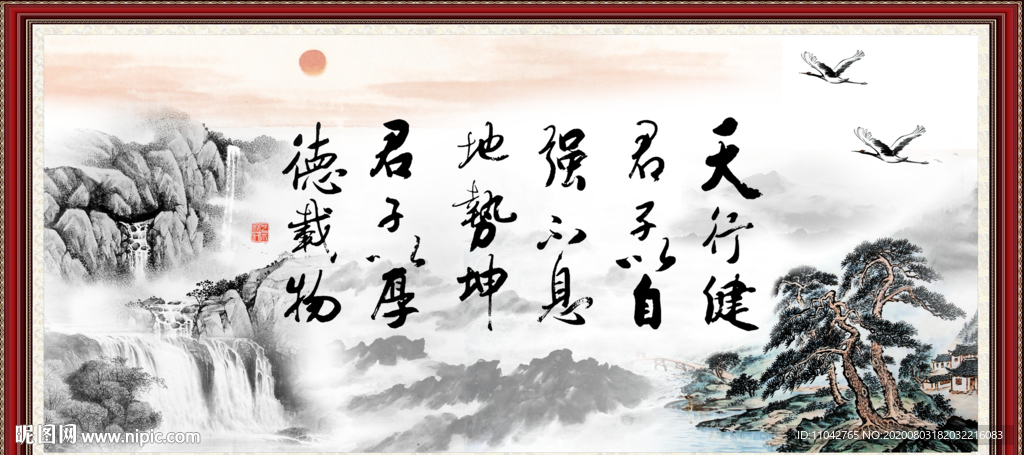 天行健
君子以自
强不息
地势坤
君子以厚
德载物
昵图网 www.nipic.com
ID:11042765 NO:20200803182032216083